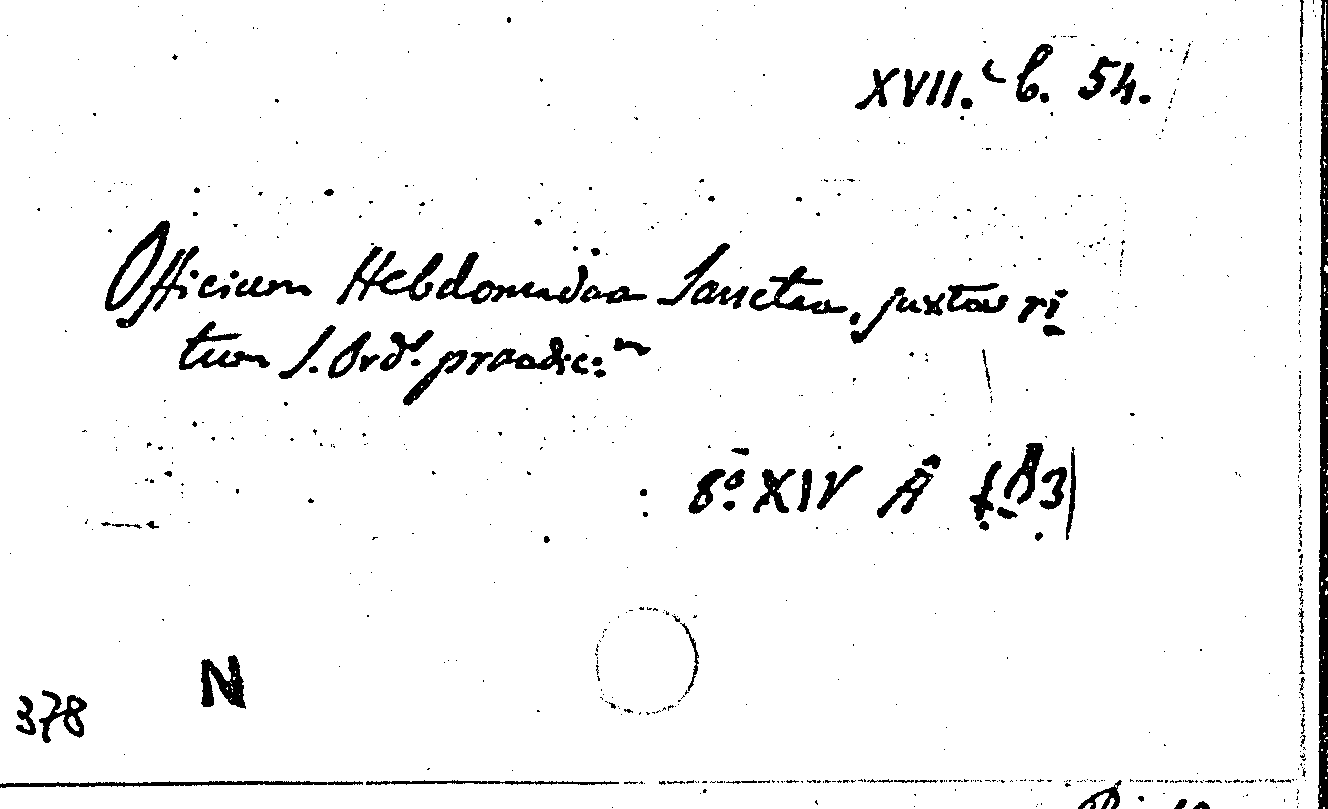 XVII. b. 54.
Officium Hebdomadae Sanctae, juxta ri-
tum S. Ord. praedic:m
8º XIV A f. 83
N
378